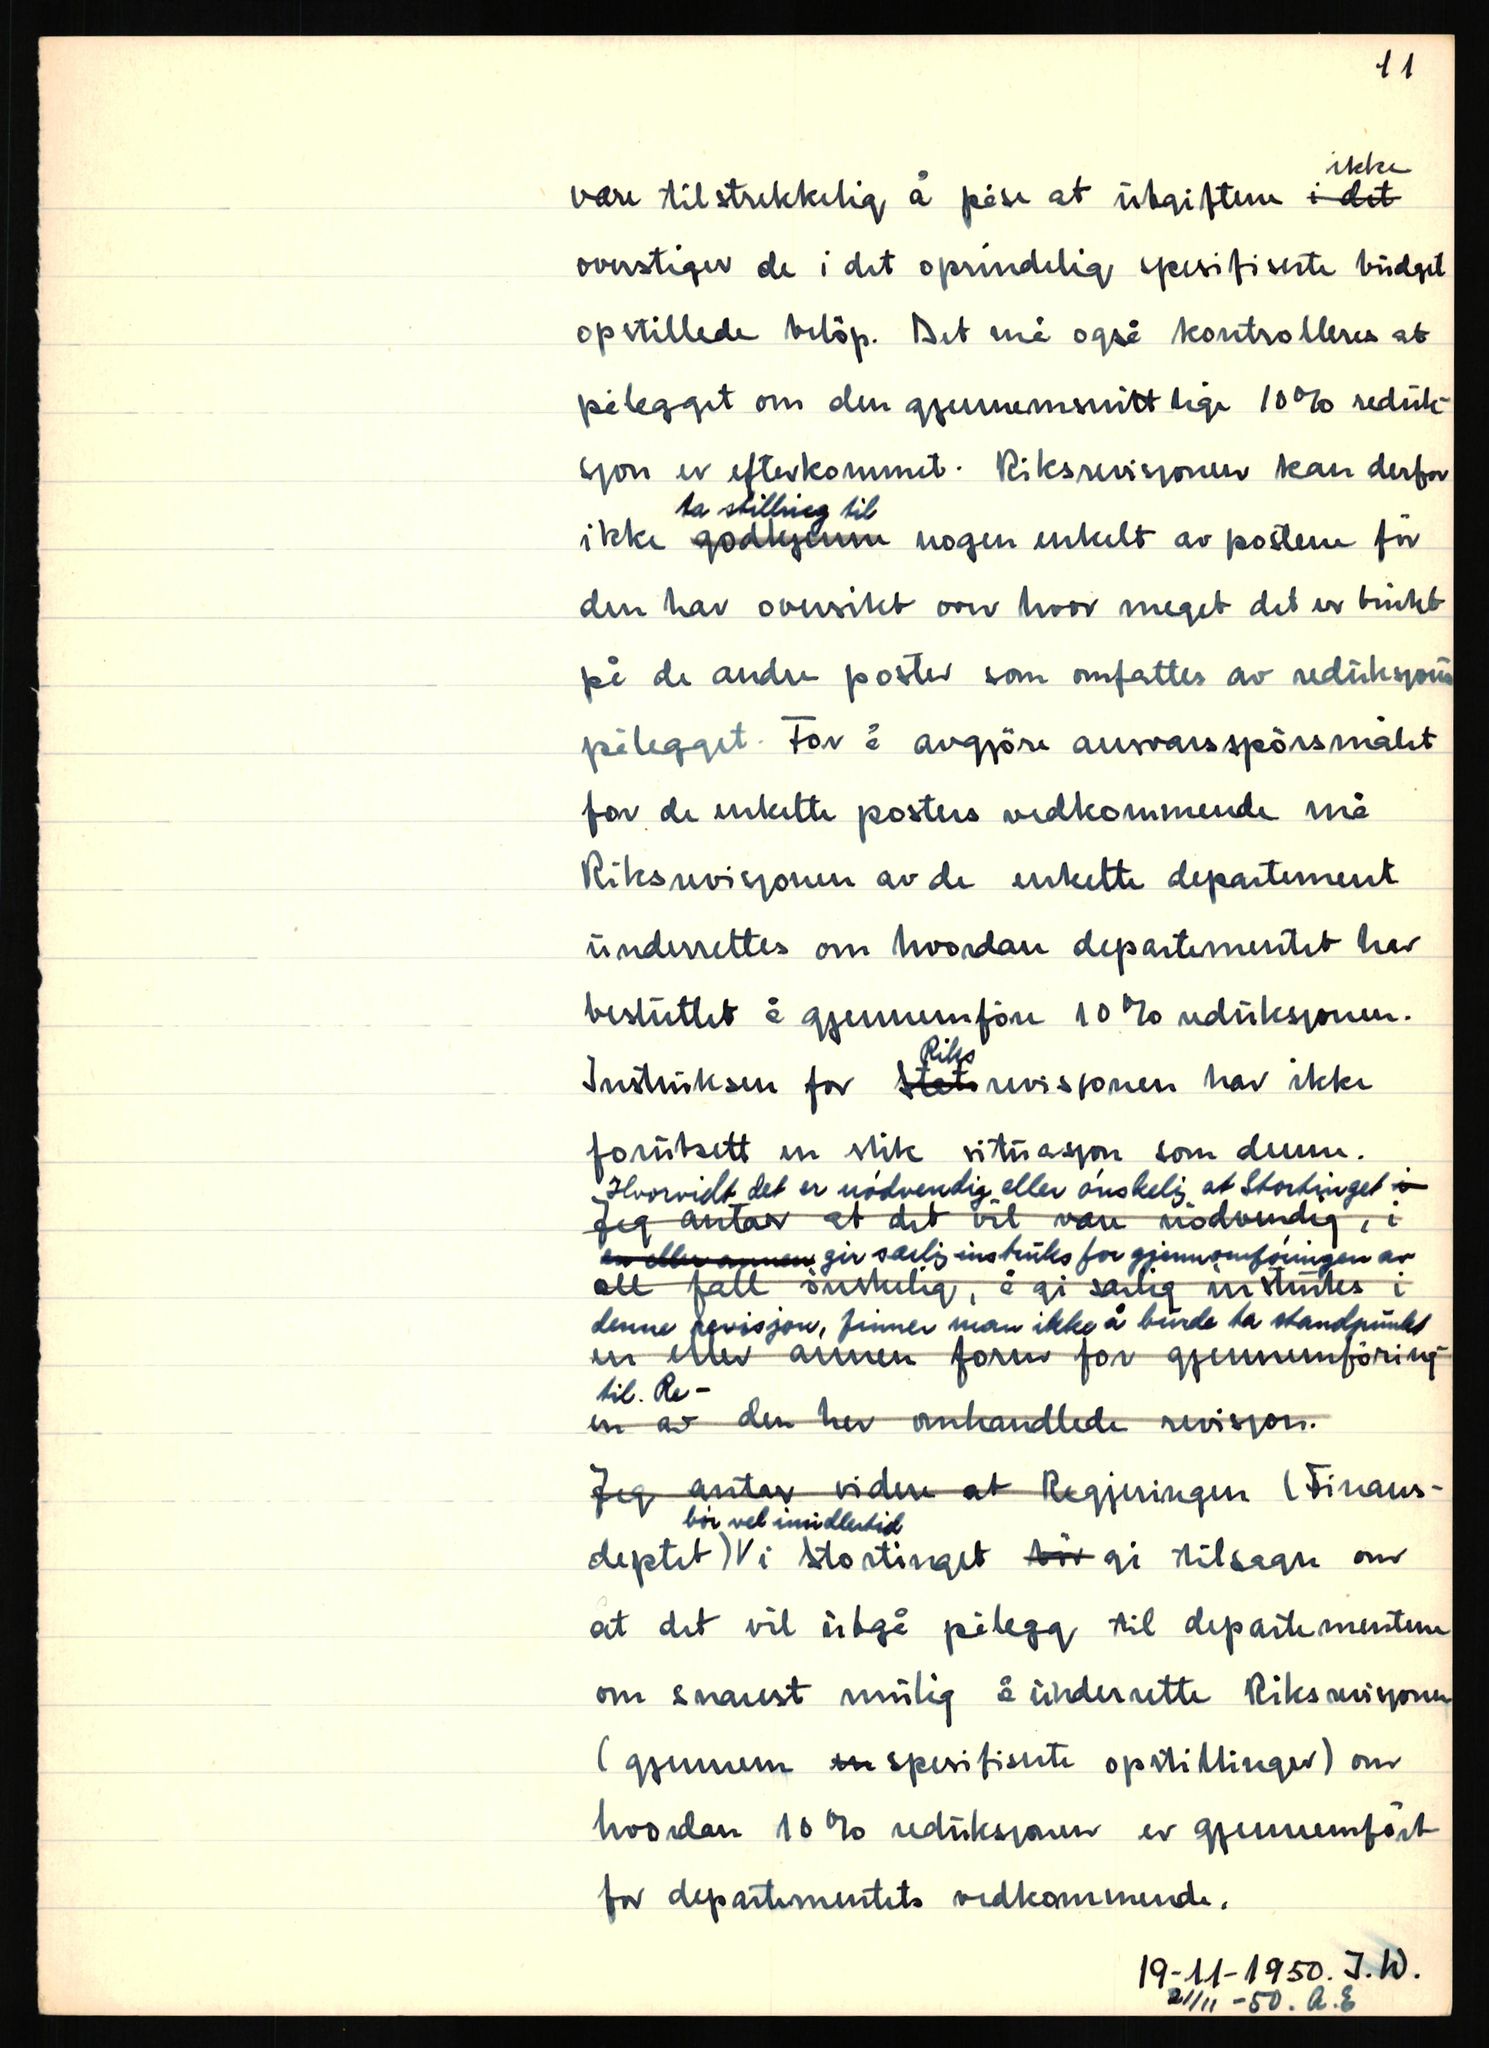 11
ikke
være tilstrekkelig å påse at utgiftene i det
overstiger de i det oprindelig spesifiserte budget
opstillede beløp. Det må også kontrolleres at
pålegget om den gjennemsnittlige 10% reduk-
sjon er efterkommet. Riksrevisjonen kan derfor
ta stilling til
ikke godkjenne nogen enkelt av postene før
den har oversikt over hvor meget det er brukt
på de andre poster som omfattes av reduksjons
pålegget. For å avgjøre ansvarsspørsmålet
for de enkelte posters vedkommende må
Riksrevisjonen av de enkelte departement
underrettes om hvordan departementet har
besluttet å gjennemføre 10% reduksjonen.
Riks
Instruksen for Stats revisjonen har ikke
forutsett en slik situasjon som denne.
Hvorvidt det er nødvendig eller ønskelig at Stortinget i
Jeg antar at det vil være nødvendig, i
en eller annen gir særlig instruks for gjennomføringen av
all fall ønskelig, å gi særlig instruks i
denne revisjon, finner man ikke å burde ta standpunkt
en eller annen form for gjennemføring-
til. Re-
en av den her omhandlede revisjon.
Jeg antar videre at Regjeringen (Finans-
bør vel imidlertid
deptet) V i Stortinget bør gi tilsagn om
at det vil utgå pålegg til departementene
om snarest mulig å underrette Riksrevisjonen
(gjennem en spesifiserte opstillinger) om
hvordan 10% reduksjonen er gjennemført
for departementets vedkommende.
19-11-1950. I.W.
21/11-50. A.E